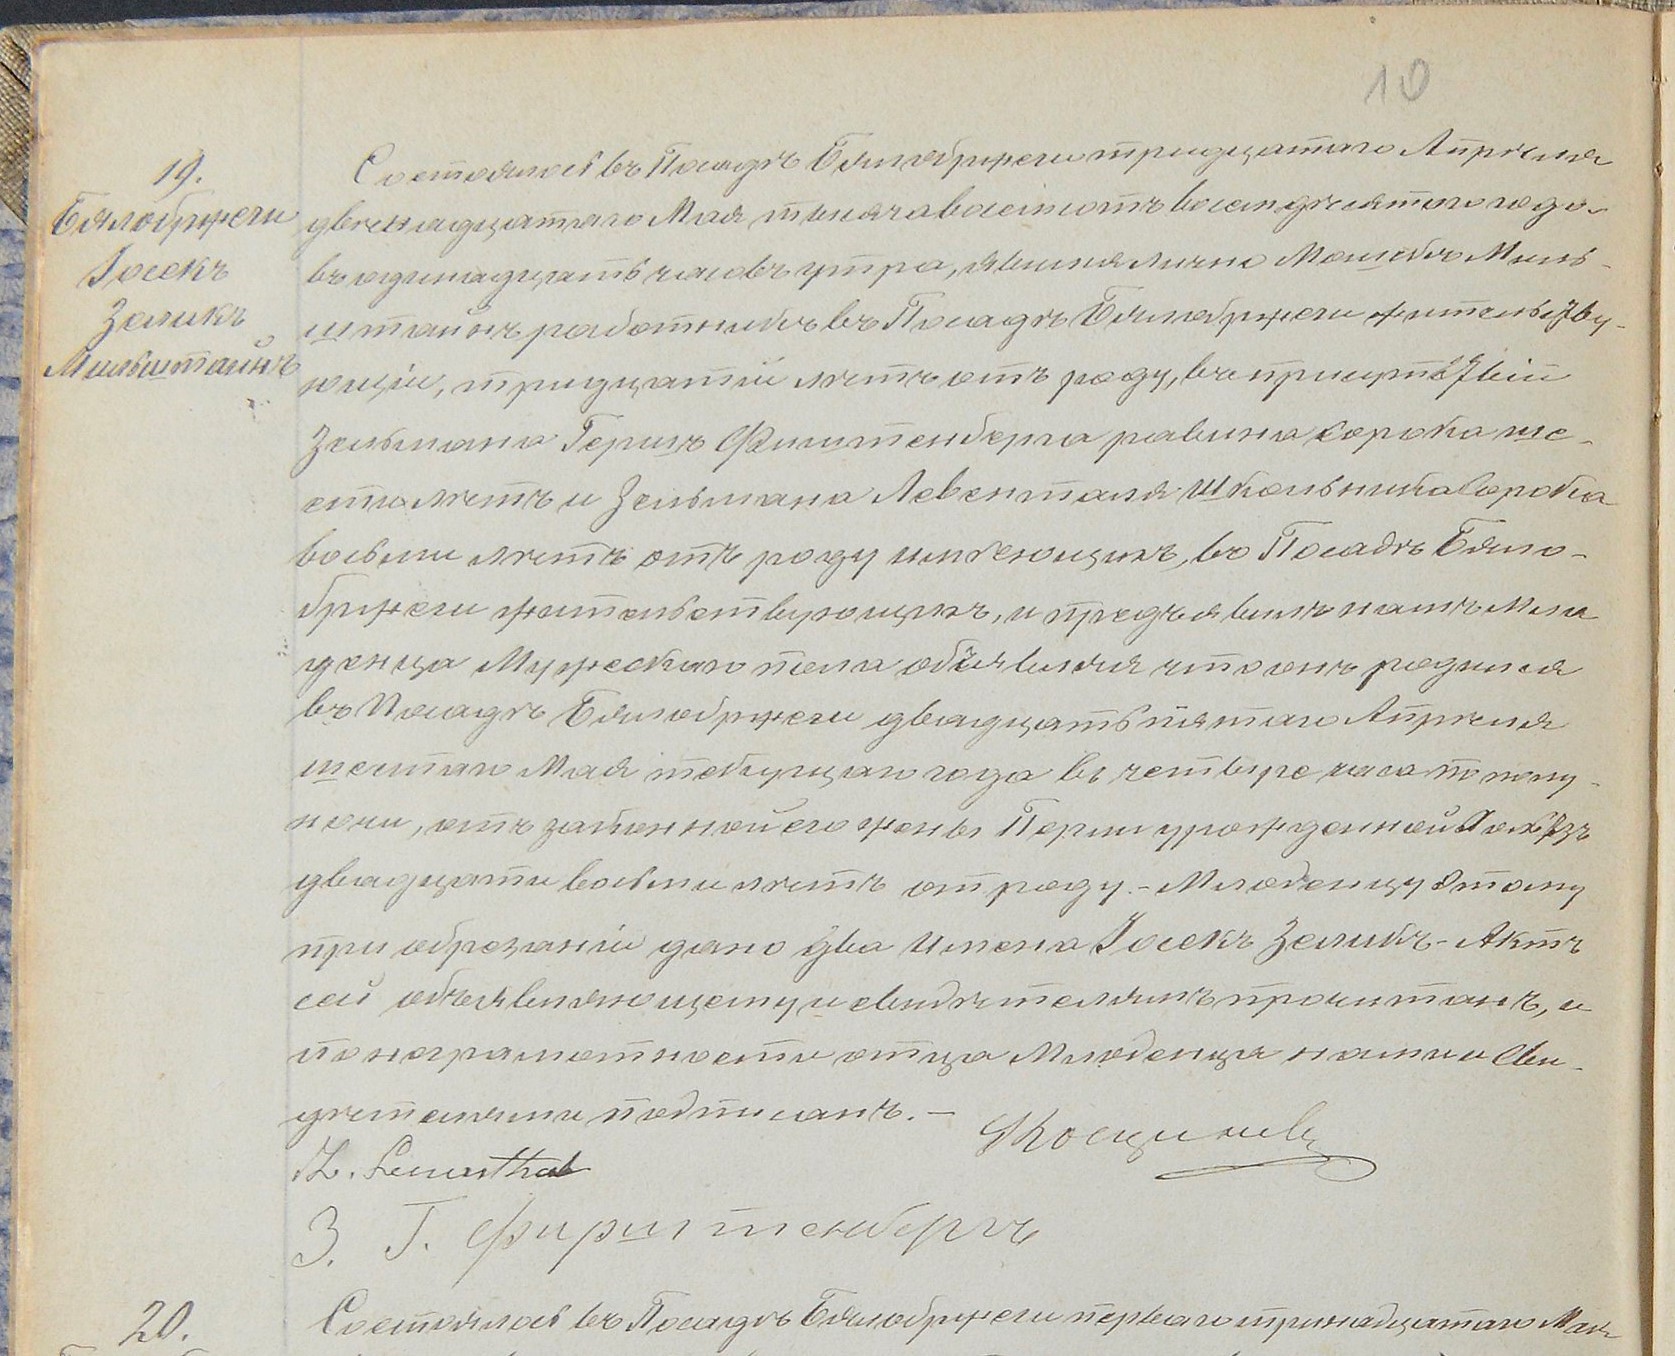 10
19.
Бялобржеги
Іосекъ
Зеликъ
Мильштайнъ
Состоялось въ Посадѣ Бялобржеги тридцатаго Апрѣля
двѣнадцатаго Мая тысяча восемьсотъ восемдѣсятаго года
въ одинадцать часовъ утра, явился лично Мошекъ Миль-
штайнъ работникъ въ Посадѣ Бялобржеги житель
ющій, тридцатій лѣтъ отъ роду, въ присутствіи
Зельмана Герша Фирштенберга равина сорока ше-
сти лѣтъ и Зельмана Левенталя Школьника Сорока
восьми лѣтъ отъ роду имѣющихъ, въ Посадѣ Бяло-
бржеги жительствующихъ, и предъявилъ намъ Мла
денца Мужескаго пола объявляя что онъ родился
въ Посадѣ Бялобржеги двадцать пятаго Апрѣля
шестаго Мая текущаго года въ четыре часа по полу-
ночи, отъ законной его жены Перли урожденной
двадцати восьми лѣтъ отъ роду.- Младенцу Этому
при обрезаніи дано два Имена Іосекъ Зеликъ - Актъ
сей объявляющему и свидѣтелямъ прочитанъ, и
по неграмотности отца Младенца нами и Сви-
дѣтелями подписанъ. -
Z. Lewenthal
З. Г. Фирштенбергъ
20.
Состоялось въ Посадѣ Бялобржеги перваго тринадцатаго Мая